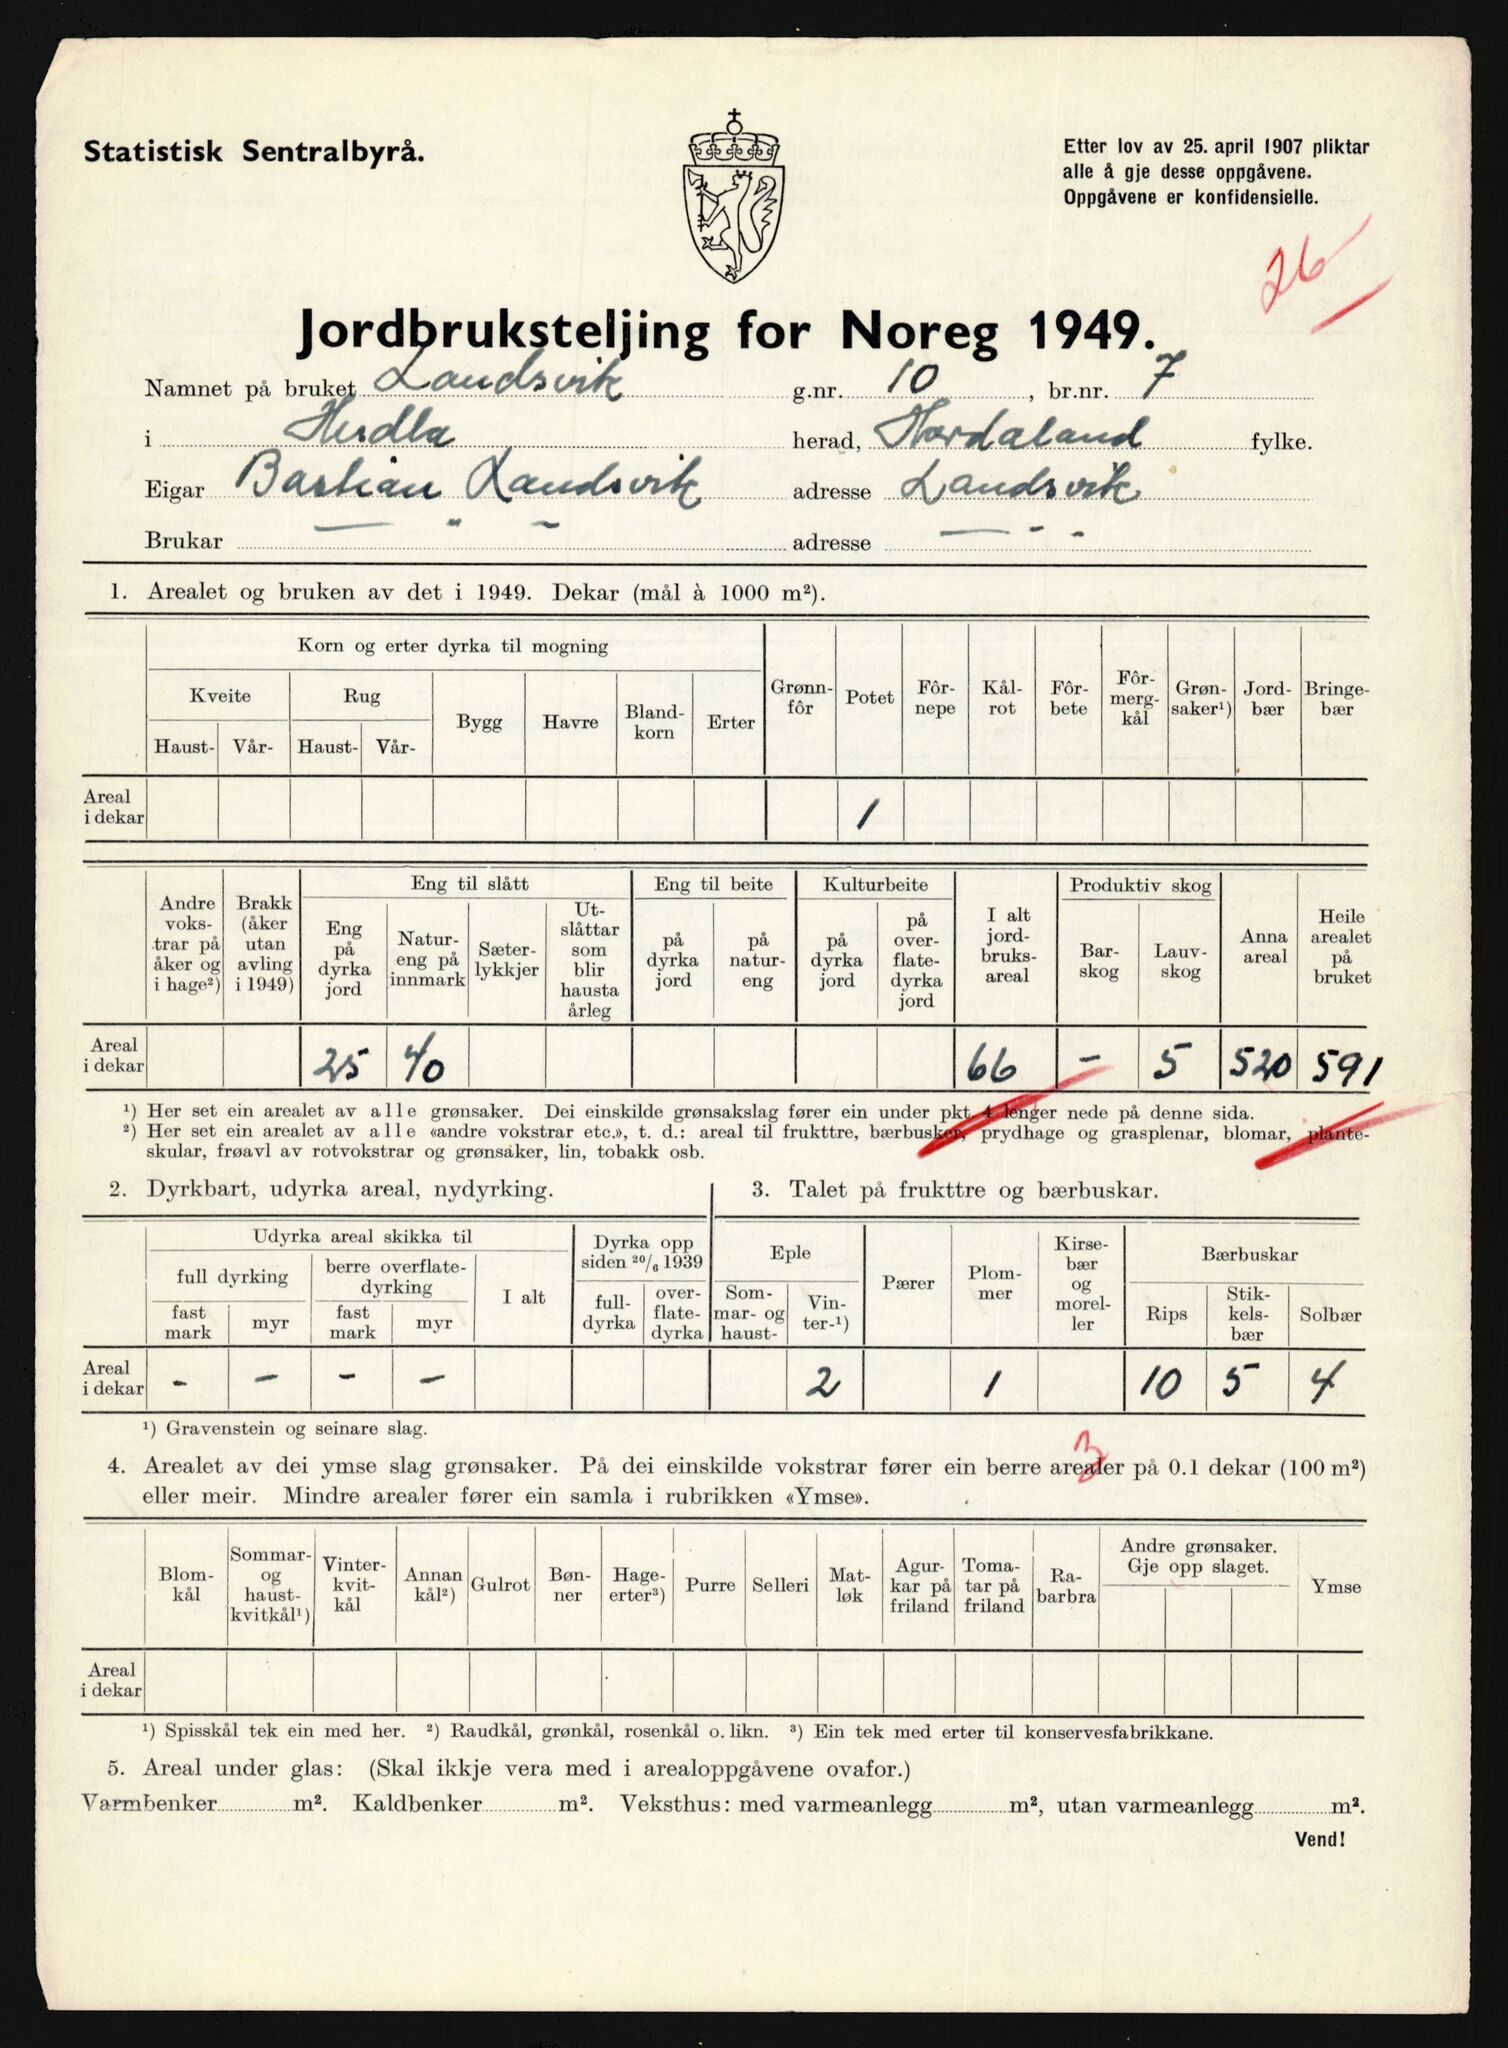 Statistisk Sentralbyrå.
Etter lov av 25. april 1907 pliktar
alle å gje desse oppgåvene.
Oppgåvene er konfidensielle.
26
Jordbruksteljing for Noreg 1949.
Namnet på bruket Landsvik g.nr. 10, br.nr. 7
i Herdla herad, Hordaland fylke.
Eigar Bastian Landsvik adresse Landsvik
Brukar — " — adresse — " —
1. Arealet og bruken av det i 1949. Dekar (mål à 1000 m²).
Korn og erter dyrka til mogning
Kveite Rug
Haust- Vår- Haust- Vår- Bygg Havre Bland-korn Erter Grønn-fôr Potet Fôr-nepe Kål-rot Fôr-bete Fôr-merg-kål Grøn-saker¹) Jord-bær Bringe-bær
Areal i dekar 1
Eng til slått Eng til beite Kulturbeite Produktiv skog
Andre voks-trar på åker og i hage²) Brakk (åker utan avling i 1949) Eng på dyrka jord Natur-eng på innmark Sæter-lykkjer Ut-slåttar som blir hausta årleg på dyrka jord på natur-eng på dyrka jord på over-flate-dyrka jord I alt jord-bruks-areal Bar-skog Lauv-skog Anna areal Heile arealet på bruket
Areal i dekar 25 40 66 - 5 520 591
¹) Her set ein arealet av alle grønsaker. Dei einskilde grønsakslag fører ein under pkt. 4 lenger nede på denne sida.
²) Her set ein arealet av alle «andre vokstrar etc.», t. d.: areal til frukttre, bærbusker, prydhage og grasplenar, blomar, plante-
skular, frøavl av rotvokstrar og grønsaker, lin, tobakk osb.
2. Dyrkbart, udyrka areal, nydyrking. 3. Talet på frukttre og bærbuskar.
Udyrka areal skikka til Dyrka opp siden 20/6 1939 Eple Bærbuskar
full dyrking berre overflate-dyrking I alt full-dyrka over-flate-dyrka Som-mar- og haust- Vin-ter-¹) Pærer Plom-mer Kirse-bær og morel-ler Rips Stik-kels-bær Solbær
fast mark myr fast mark myr
Areal i dekar - - - - 2 1 10 5 4
¹) Gravenstein og seinare slag.
3
4. Arealet av dei ymse slag grønsaker. På dei einskilde vokstrar fører ein berre arealer på 0.1 dekar (100 m²)
eller meir. Mindre arealer fører ein samla i rubrikken «Ymse».
Blom-kål Sommar- og haust-kvitkål¹) Vinter-kvit-kål Annan kål²) Gulrot Bøn-ner Hage-erter³) Purre Selleri Mat-løk Agur-kar på friland Toma-tar på friland Ra-barbra Andre grønsaker. Gje opp slaget. Ymse
Areal i dekar
¹) Spisskål tek ein med her. ²) Raudkål, grønkål, rosenkål o. likn. ³) Ein tek med erter til konservesfabrikkane.
5. Areal under glas: (Skal ikkje vera med i arealoppgåvene ovafor.)
Varmbenker m². Kaldbenker m². Veksthus: med varmeanlegg m², utan varmeanlegg m².
Vend!